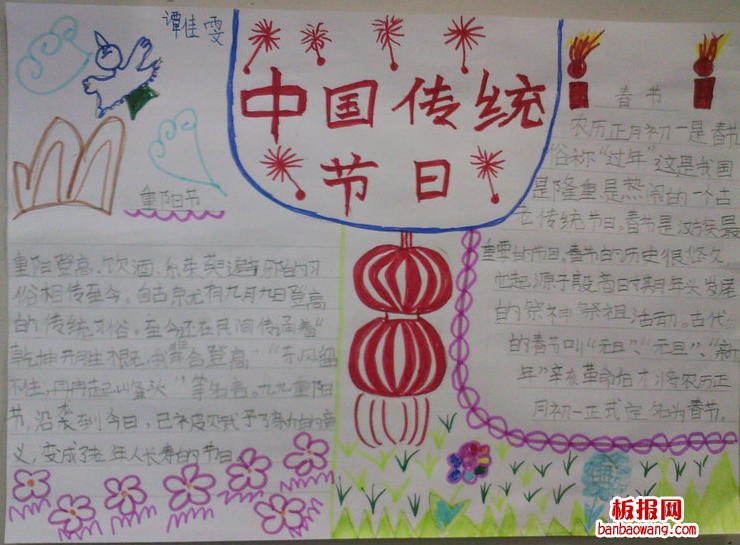 谭佳雯
中国传统
节日
重阳节
重阳登高、饮酒、
俗相传至今。自古就有九月九日登高
的传统习俗,至今还在民间传诵着“
乾坤开胜概,我辈合登高”“东风留
不住,冉冉起峰头”等名言。九九重阳
节,沿袭到今日,已被赋予了新的含
义,变成了老年人长寿的节日。
春节
农历正月初一是春节
俗称“过年”这是我国
是隆重是热闹的一个古
老传统节日。春节是汉族最
重要的节日。春节的历史很悠久
它起源于殷商时期年头岁尾
的祭神祭祖活动。古代
的春节叫“元旦”、“元旦”、“新
年”辛亥革命后才将农历正
月初一正式定名为春节。
板报网
banbaowang.com